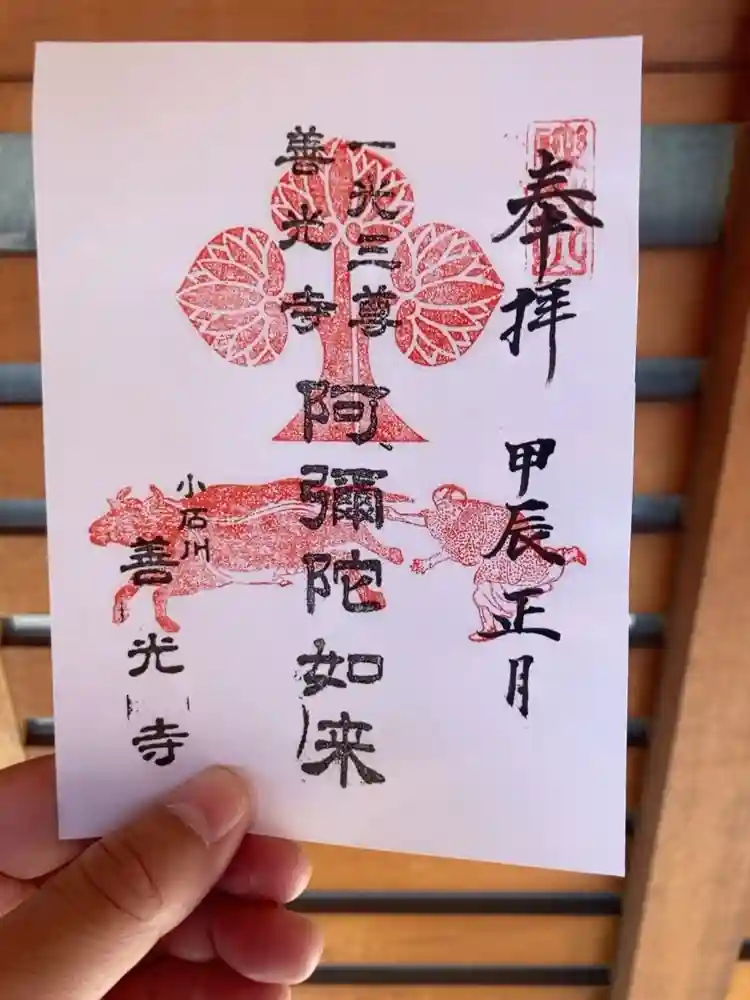 奉拝 甲辰正月
一光三尊
善光寺
阿彌陀如来
小石川
善光寺